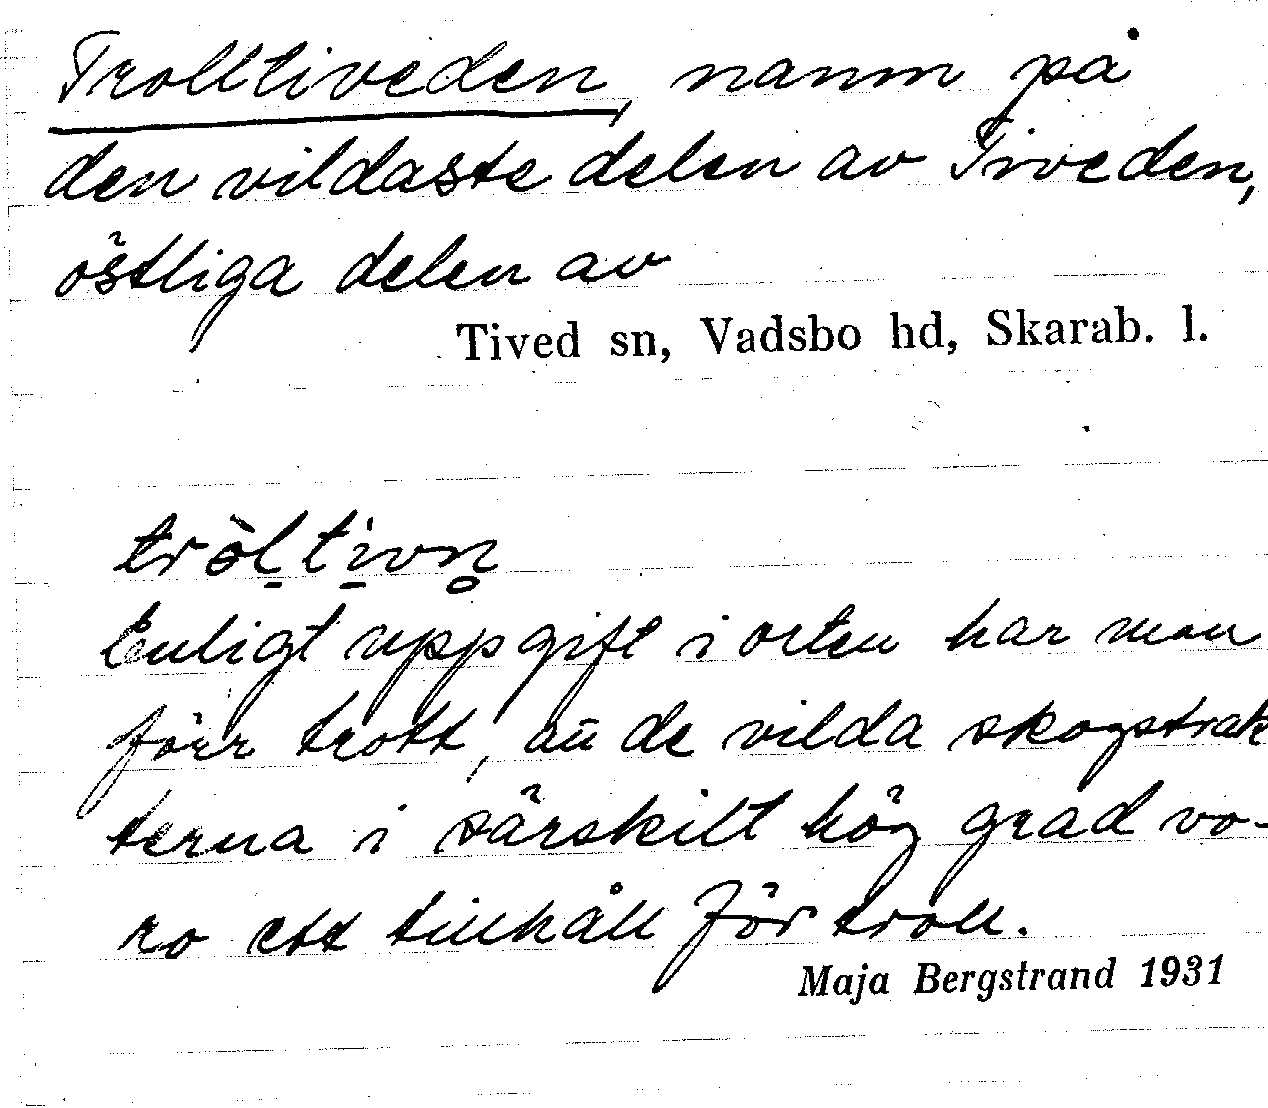 Trolltiveden, namn på
den vildaste delen av Tiveden,
östliga delen av
Tived sn, Vadsbo hd, Skarab. l.
tròl̠ti̠vn̥
Enligt uppgift i orten har man
förr trott, att de vilda skogstrak
terna i särskilt hög grad vo-
ro ett tillhåll för troll.
Maja Bergstrand 1931